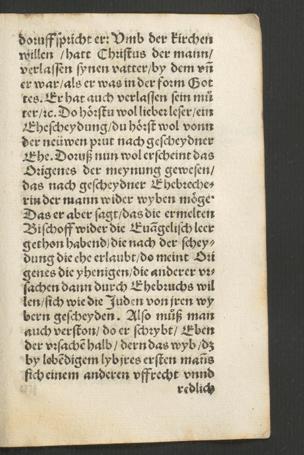 doruff spricht er: Vmb der kirchen
willen / hatt Christus der mann/
verlassen synen vatter/by dem vñ
er war/als er was in der form Got
tes. Er hat auch verlassen sein mů
ter/ꝛc. Do hörstu wol lieber leser/ein
Ehescheydung/du hörst wol vonn
der neüwen prut nach gescheydner
Ehe. Doruß nun wol erscheint das
Origenes der meynung gewesen/
das nach gescheydner Ehebreche-
rin der mann wider wyben möge
Das er aber sagt/das die ermelten
Bischoff wider die Euãgelisch leer
gethon habend/die nach der schey-
dung die ehe erlaubt/do meint Ori
genes die yhenigen/die anderer vr-
sachen dann durch Ehebruchs wil
len/sich wie die Juden von jren wy
bern gescheyden. Also můß man
auch verston/do er schrybt/ Eben
der vrsachẽ halb/ dern das wyb/dz
by lobẽdigem lyb jres ersten mañs
sich einem anderen vffrecht vnnd
redlich